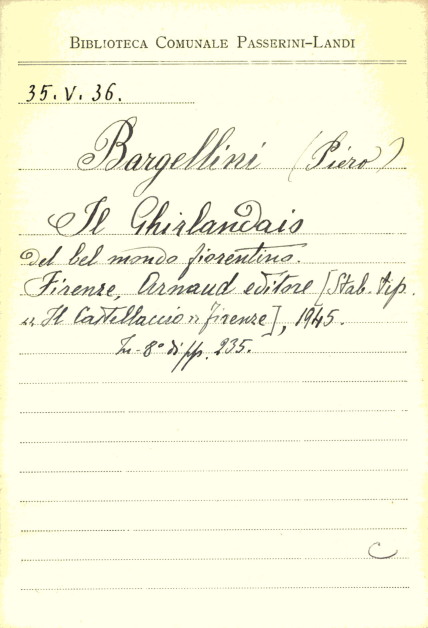 BIBLIOTECA COMUNALE PASSERINI-LANDI
35. V. 36.
Bargellini (Piero)
Il Ghirlandaio
del bel mondo fiorentino.
Firenze, Arnaud editore [Stab. tip.
"Il Castelluccio" Firenze], 1945.
In-8° di pp. 235.
C